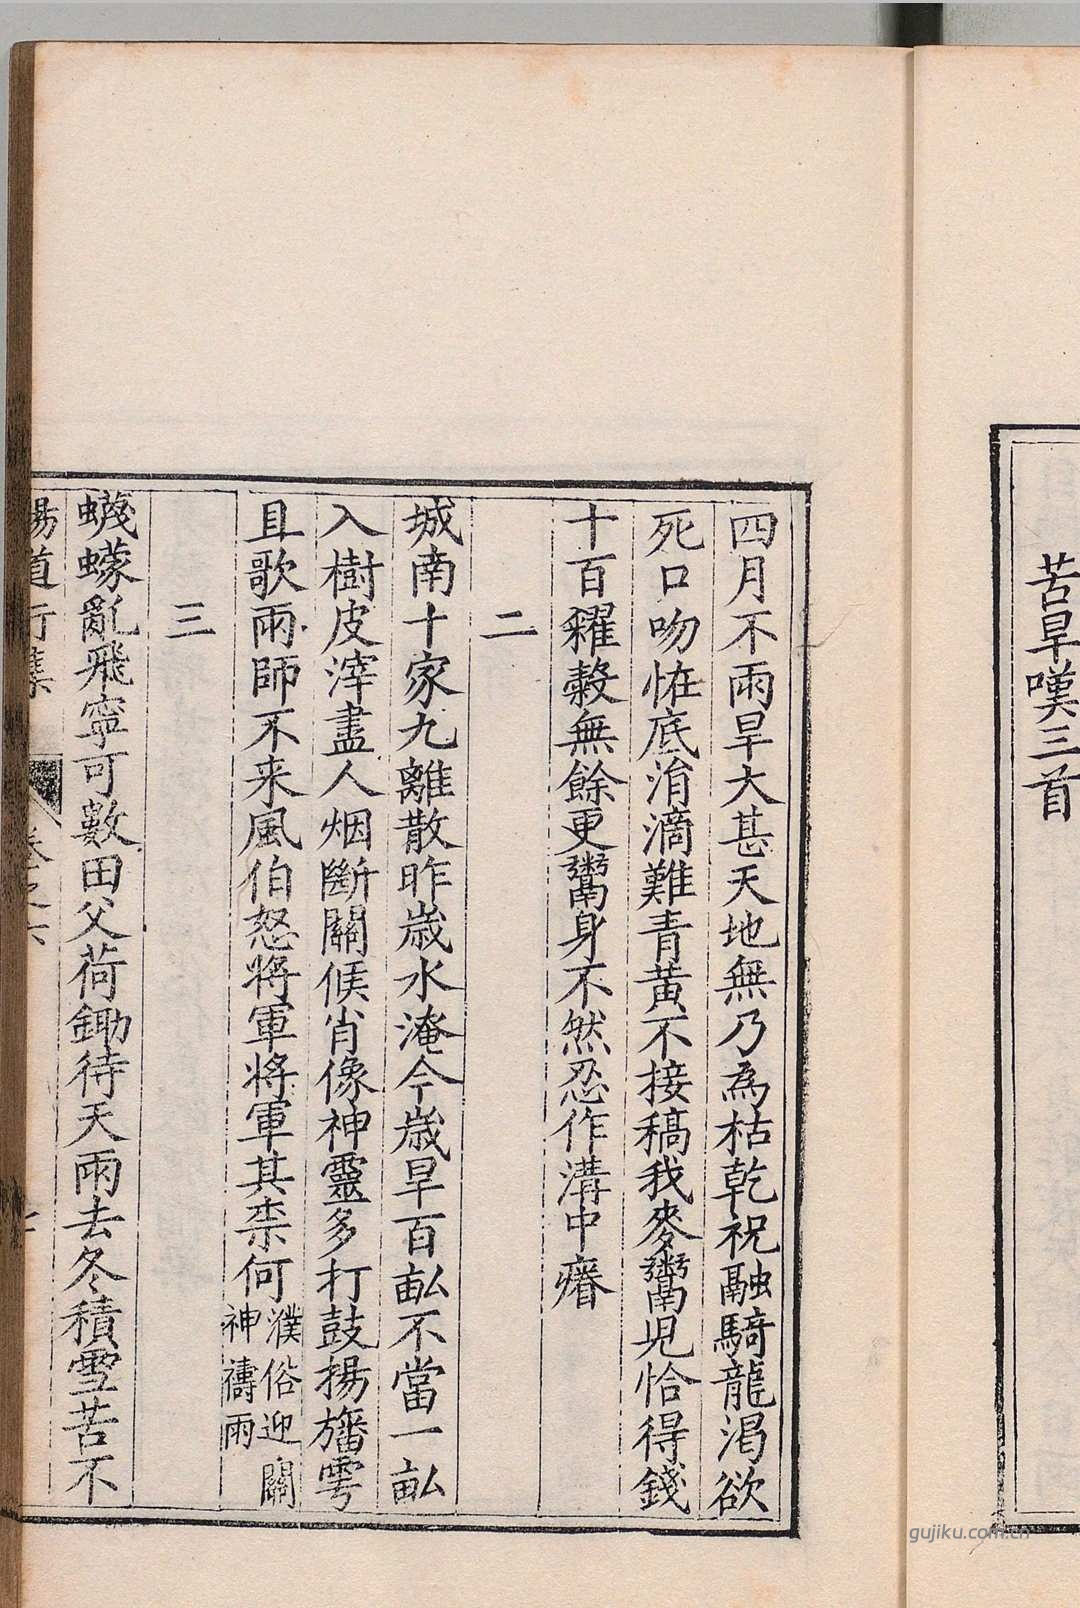 苦旱嘆三首
四月不雨旱大甚天地無乃為枯乾祝融騎龍渴欲
死口吻恠底涓滴難青黃不接稿我麥鬻児恰得錢
十百糴穀無餘更鬻身不然忍作溝中瘠
二
城南十家九離散昨歳水淹今歳旱百畝不當一畝
入樹皮滓盡人烟斷關候肖像神靈多打鼓揚旛雩
且歌雨師不来風伯怒将軍将軍其柰何
濮俗迎關
神禱雨
三
蠛蠓亂飛寧可數田父荷鋤待天雨去冬積雪苦不
道行集 卷之六
gujiku.com.cn